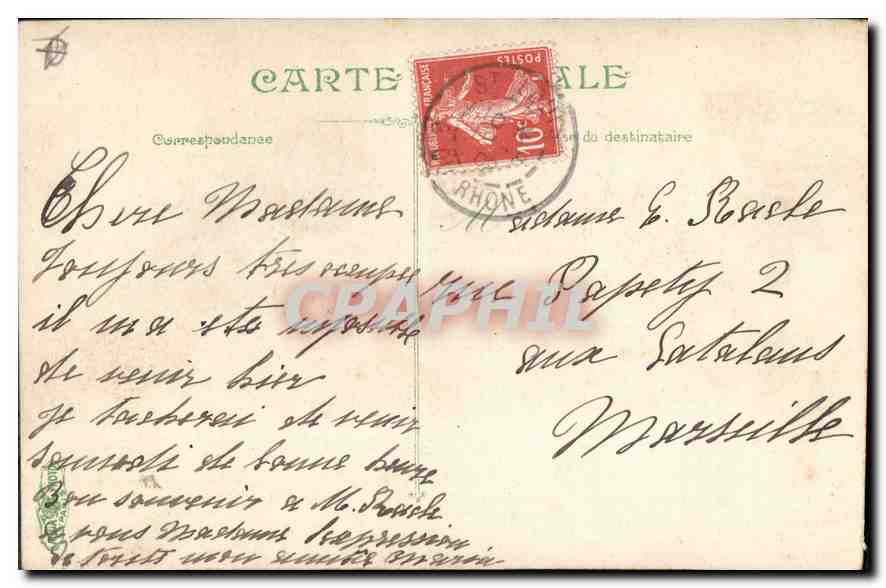 CARTE POSTALE
Correspondance
du destinataire
POSTES
FRANÇAISE
10c
RHONE
CRAPHIL
Chere Madame
Toujours tres occupé
il m a ete impossible
de venir hier
je tacherai de venir
samedi de bonne heure
Bon souvenir a M. Racle
a vous Madame l'expression
de toute mon amitié Marie
Madame E. Racle
rue Papety 2
aux Catalans
Marseille